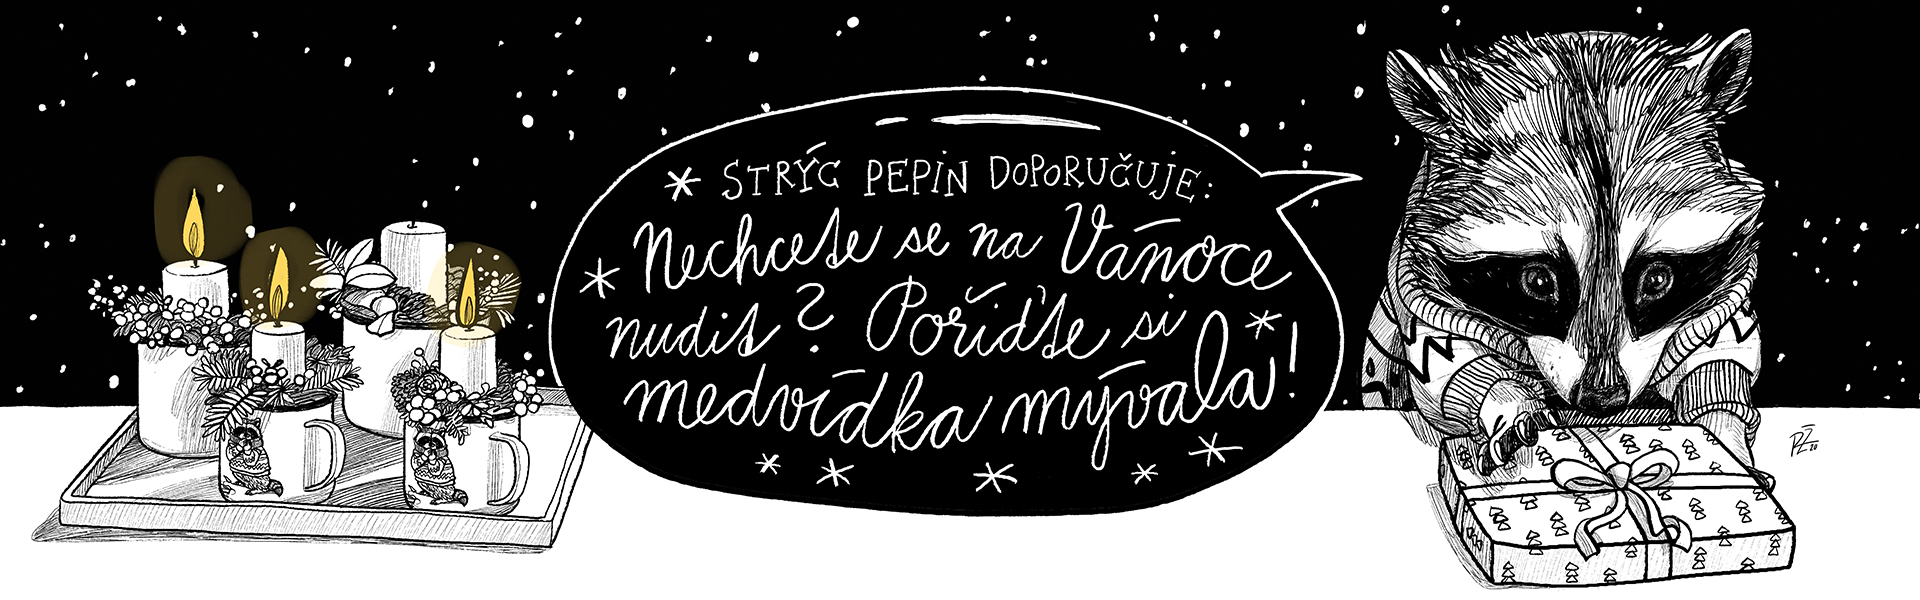 * STRÝC PEPIN DOPORUČUJE:
* Nechcete se na Vánoce
nudit? Pořiďte si *
medvídka mývala!
PŽ 20